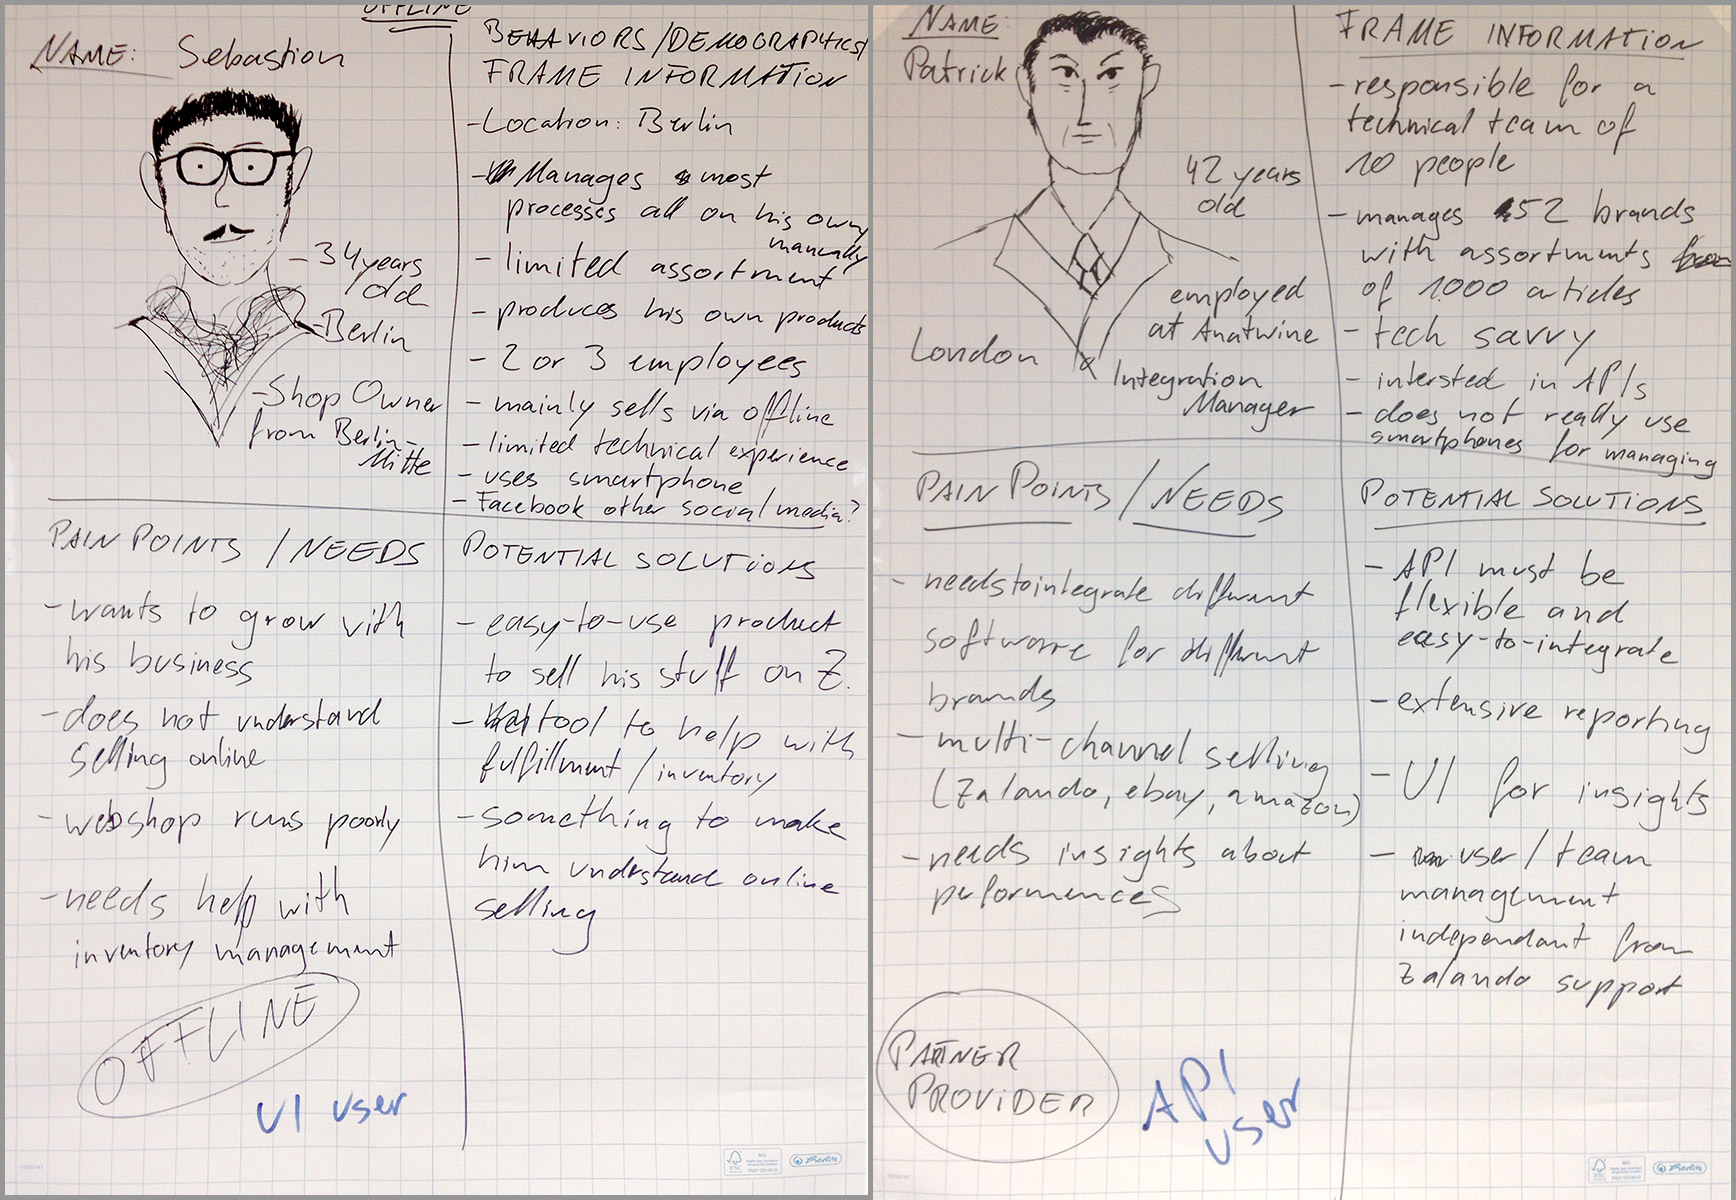 OFFLINE
NAME: Sebastian
- 34 years
old
- Berlin
- Shop Owner
from Berlin-
Mitte
BEHAVIORS/DEMOGRAPHICS/
FRAME INFORMATION
- Location: Berlin
- Manages most
processes all on his own
manually
- limited assortment
- produces his own products
- 2 or 3 employees
- mainly sells via offline
- limited technical experience
- uses smartphone
- Facebook other social media?
PAIN POINTS / NEEDS
- wants to grow with
his business
- does not understand
selling online
- webshop runs poorly
- needs help with
inventory management
OFFLINE
UI user
POTENTIAL SOLUTIONS
- easy-to-use product
to sell his stuff on Z.
- tool to help with
fulfillment / inventory
- something to make
him understand online
selling
NAME:
Patrick
42 years
old
employed
at Anatwine
London
Integration
Manager
FRAME INFORMATION
- responsible for a
technical team of
10 people
- manages 52 brands
with assortments
of 1000 articles
- tech savvy
- intersted in APIs
- does not really use
smartphones for managing
PAIN POINTS / NEEDS
- needs to integrate different
software for different
brands
- multi-channel selling
(Zalando, ebay, amazon)
- needs insights about
performences
PARTNER
PROVIDER
API
user
POTENTIAL SOLUTIONS
- API must be
flexible and
easy-to-integrate
- extensive reporting
- UI for insights
- user / team
management
independant from
Zalando support